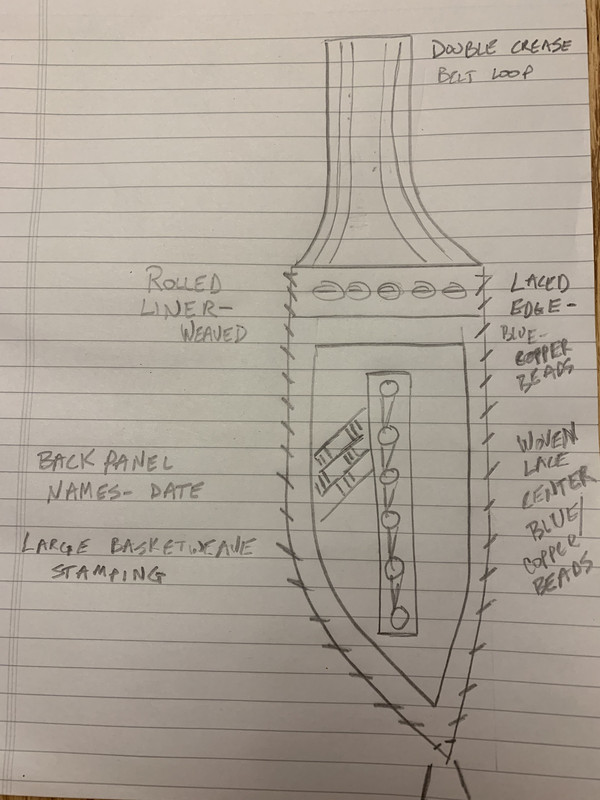 DOUBLE CREASE
BELT LOOP
ROLLED
LINER-
WEAVED
LACED
EDGE-
BLUE-
COPPER
BEADS
BACK PANEL
NAMES- DATE
LARGE BASKETWEAVE
STAMPING
WOVEN
LACE
CENTER
BLUE/
COPPER
BEADS